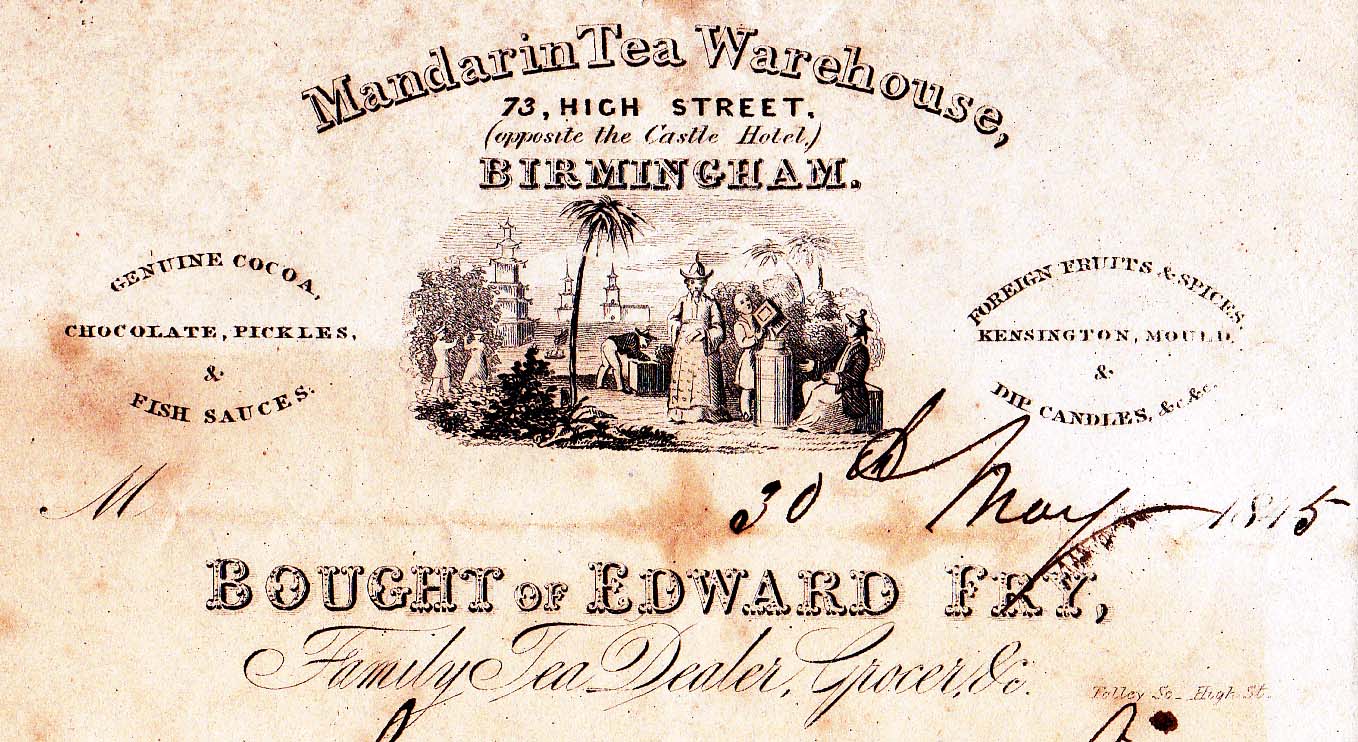 Mandarin Tea Warehouse,
73, HIGH STREET,
(opposite the Castle Hotel.)
BIRMINGHAM.
GENUINE COCOA,
CHOCOLATE, PICKLES,
&
FISH SAUCES.
FOREIGN FRUITS & SPICES,
KENSINGTON, MOULD
&
DIP CANDLES, &c &c.
M 30th May 1815
BOUGHT OF EDWARD FRY,
Family Tea Dealer, Grocer, &c.
Tolley Sc_ High St.